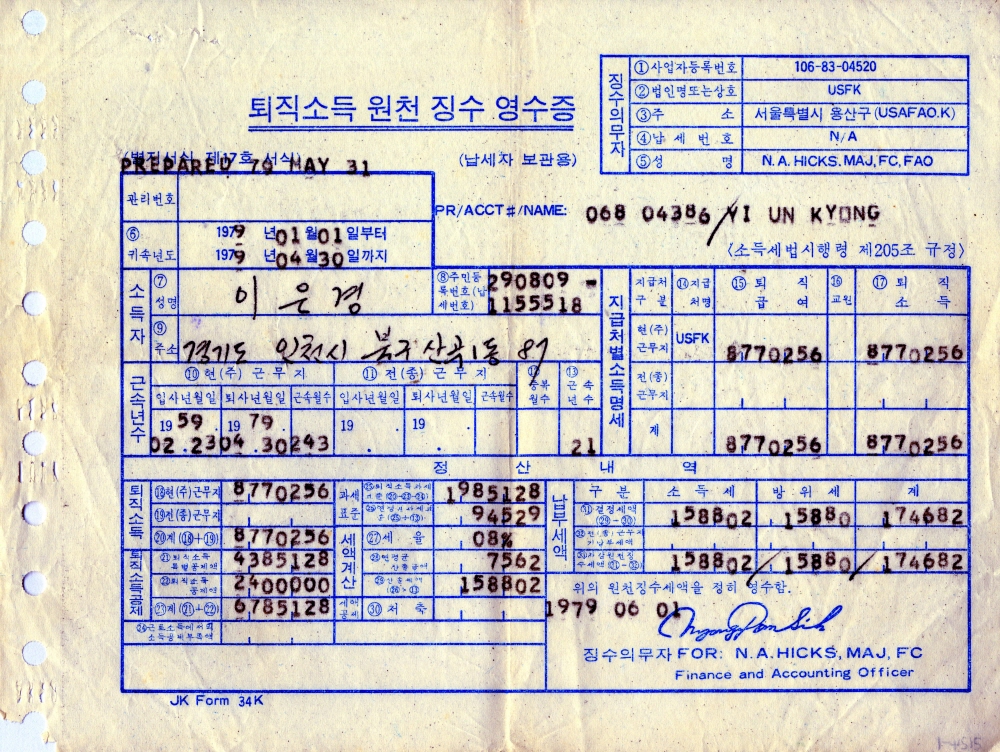 징수의무자
①사업자등록번호 106-83-04520
②법인명또는상호 USFK
③주 소 서울특별시 용산구 (USAFAO.K)
④납 세 번 호 N/A
⑤성 명 N.A. HICKS, MAJ, FC, FAO
퇴직소득 원천 징수 영수증
제17호 서식
(납세자 보관용)
PREPARED 79 MAY 31
관리번호
PR/ACCT#/NAME: 068 04386 YI UN KYONG
⑥ 귀속년도
1979 년 01 월 01 일부터
1979 년 04 월 30 일까지
(소득세법시행령 제205조 규정)
소득자
⑦ 성명 이 은 경
⑧주민등록번호(납세번호) 290809 - 1155518
⑨ 주소 경기도 인천시 북구 산곡1동 87
지급처별소득명세
지급처 구분 ⑭지급처명 ⑮퇴직급여 ⑯교원 ⑰퇴직소득
현(주)근무지 USFK 8770256 8770256
전(종)근무지
계 8770256 8770256
근속년수
⑩현(주) 근 무 지 ⑪전(종) 근 무 지 ⑫중복월수 ⑬근속년수
입사년월일 퇴사년월일 근속월수 입사년월일 퇴사년월일 근속월수
19 59 . 19 79 . 19 . 19 .
02 . 23 04 . 30 243 21
정 산 내 역
퇴직소득
⑱현(주)근무지 8770256
⑲전(종)근무지
⑳계(⑱+⑲) 8770256
퇴직소득공제
㉑퇴직소득특별공제액 4385128
㉒퇴직소득공제액 2400000
㉓계(㉑+㉒) 6785128
과세표준
1985128
94529
세액계산
㉗세 율 08%
㉘연평균산출세액 7562
㉙산출세액 158802
세액공제 ㉚저 축
납부세액
구 분 소 득 세 방 위 세 계
㉛결정세액(㉙-㉚) 158802 15880 174682
158802 15880 174682
위의 원천징수세액을 정히 영수함.
1979 06 01
징수의무자 FOR: N.A. HICKS, MAJ, FC
Finance and Accounting Officer
JK Form 34K